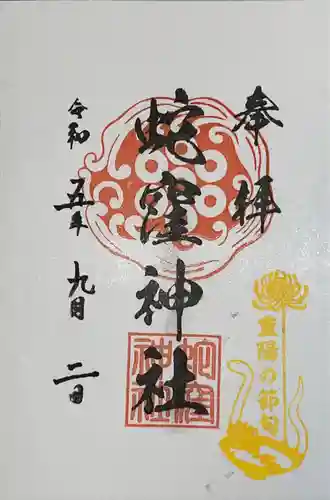 奉拝
蛇窪神社
蛇窪神社
重陽の節句
令和五年九月二日